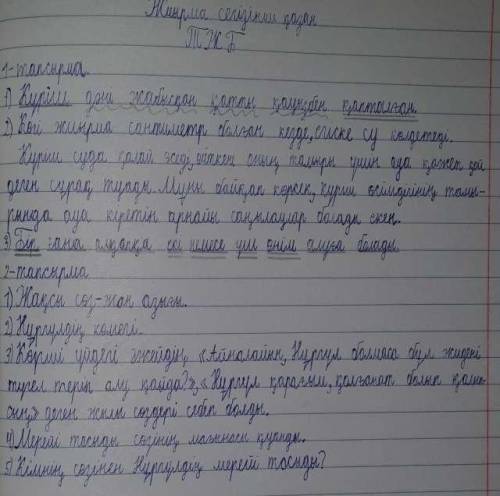 Жиырма сегізінші қазан
ТЖБ
1-тапсырма.
1) Күріш дәні жабысқан қатты қауызбен қапталған.
2) Көп жиырма сантиметр болған кезде, егіске су келдетеді.
Күріш суда қалай өседі, өйткені оның тамыры үшін ауа қажет қой
деген сұрақ туады. Мұны байқап көрсек, күріш өсімдігінің тамы-
рында ауа кіретін арнайы саңылаулар болады екен.
3) Бір ғана алқапқа екі немесе үш өнім алуға болады
2-тапсырма
1) Жақсы сөз-жан азығы.
2) Нұргүлдің көмегі.
3) Көрші үйдегі әжейдің, «Айналайын, Нұргүл болмаса бұл жидені
түгел теріп алу қайда?», «Нұргүл қарағым, қолғанат болып қалып-
сың» деген жылы сөздері себеп болды.
4) Мерейі тасыды сөзінің мағынасы қуанды.
5) Кімнің сөзінен Нұргүлдің мерейі тасыды?